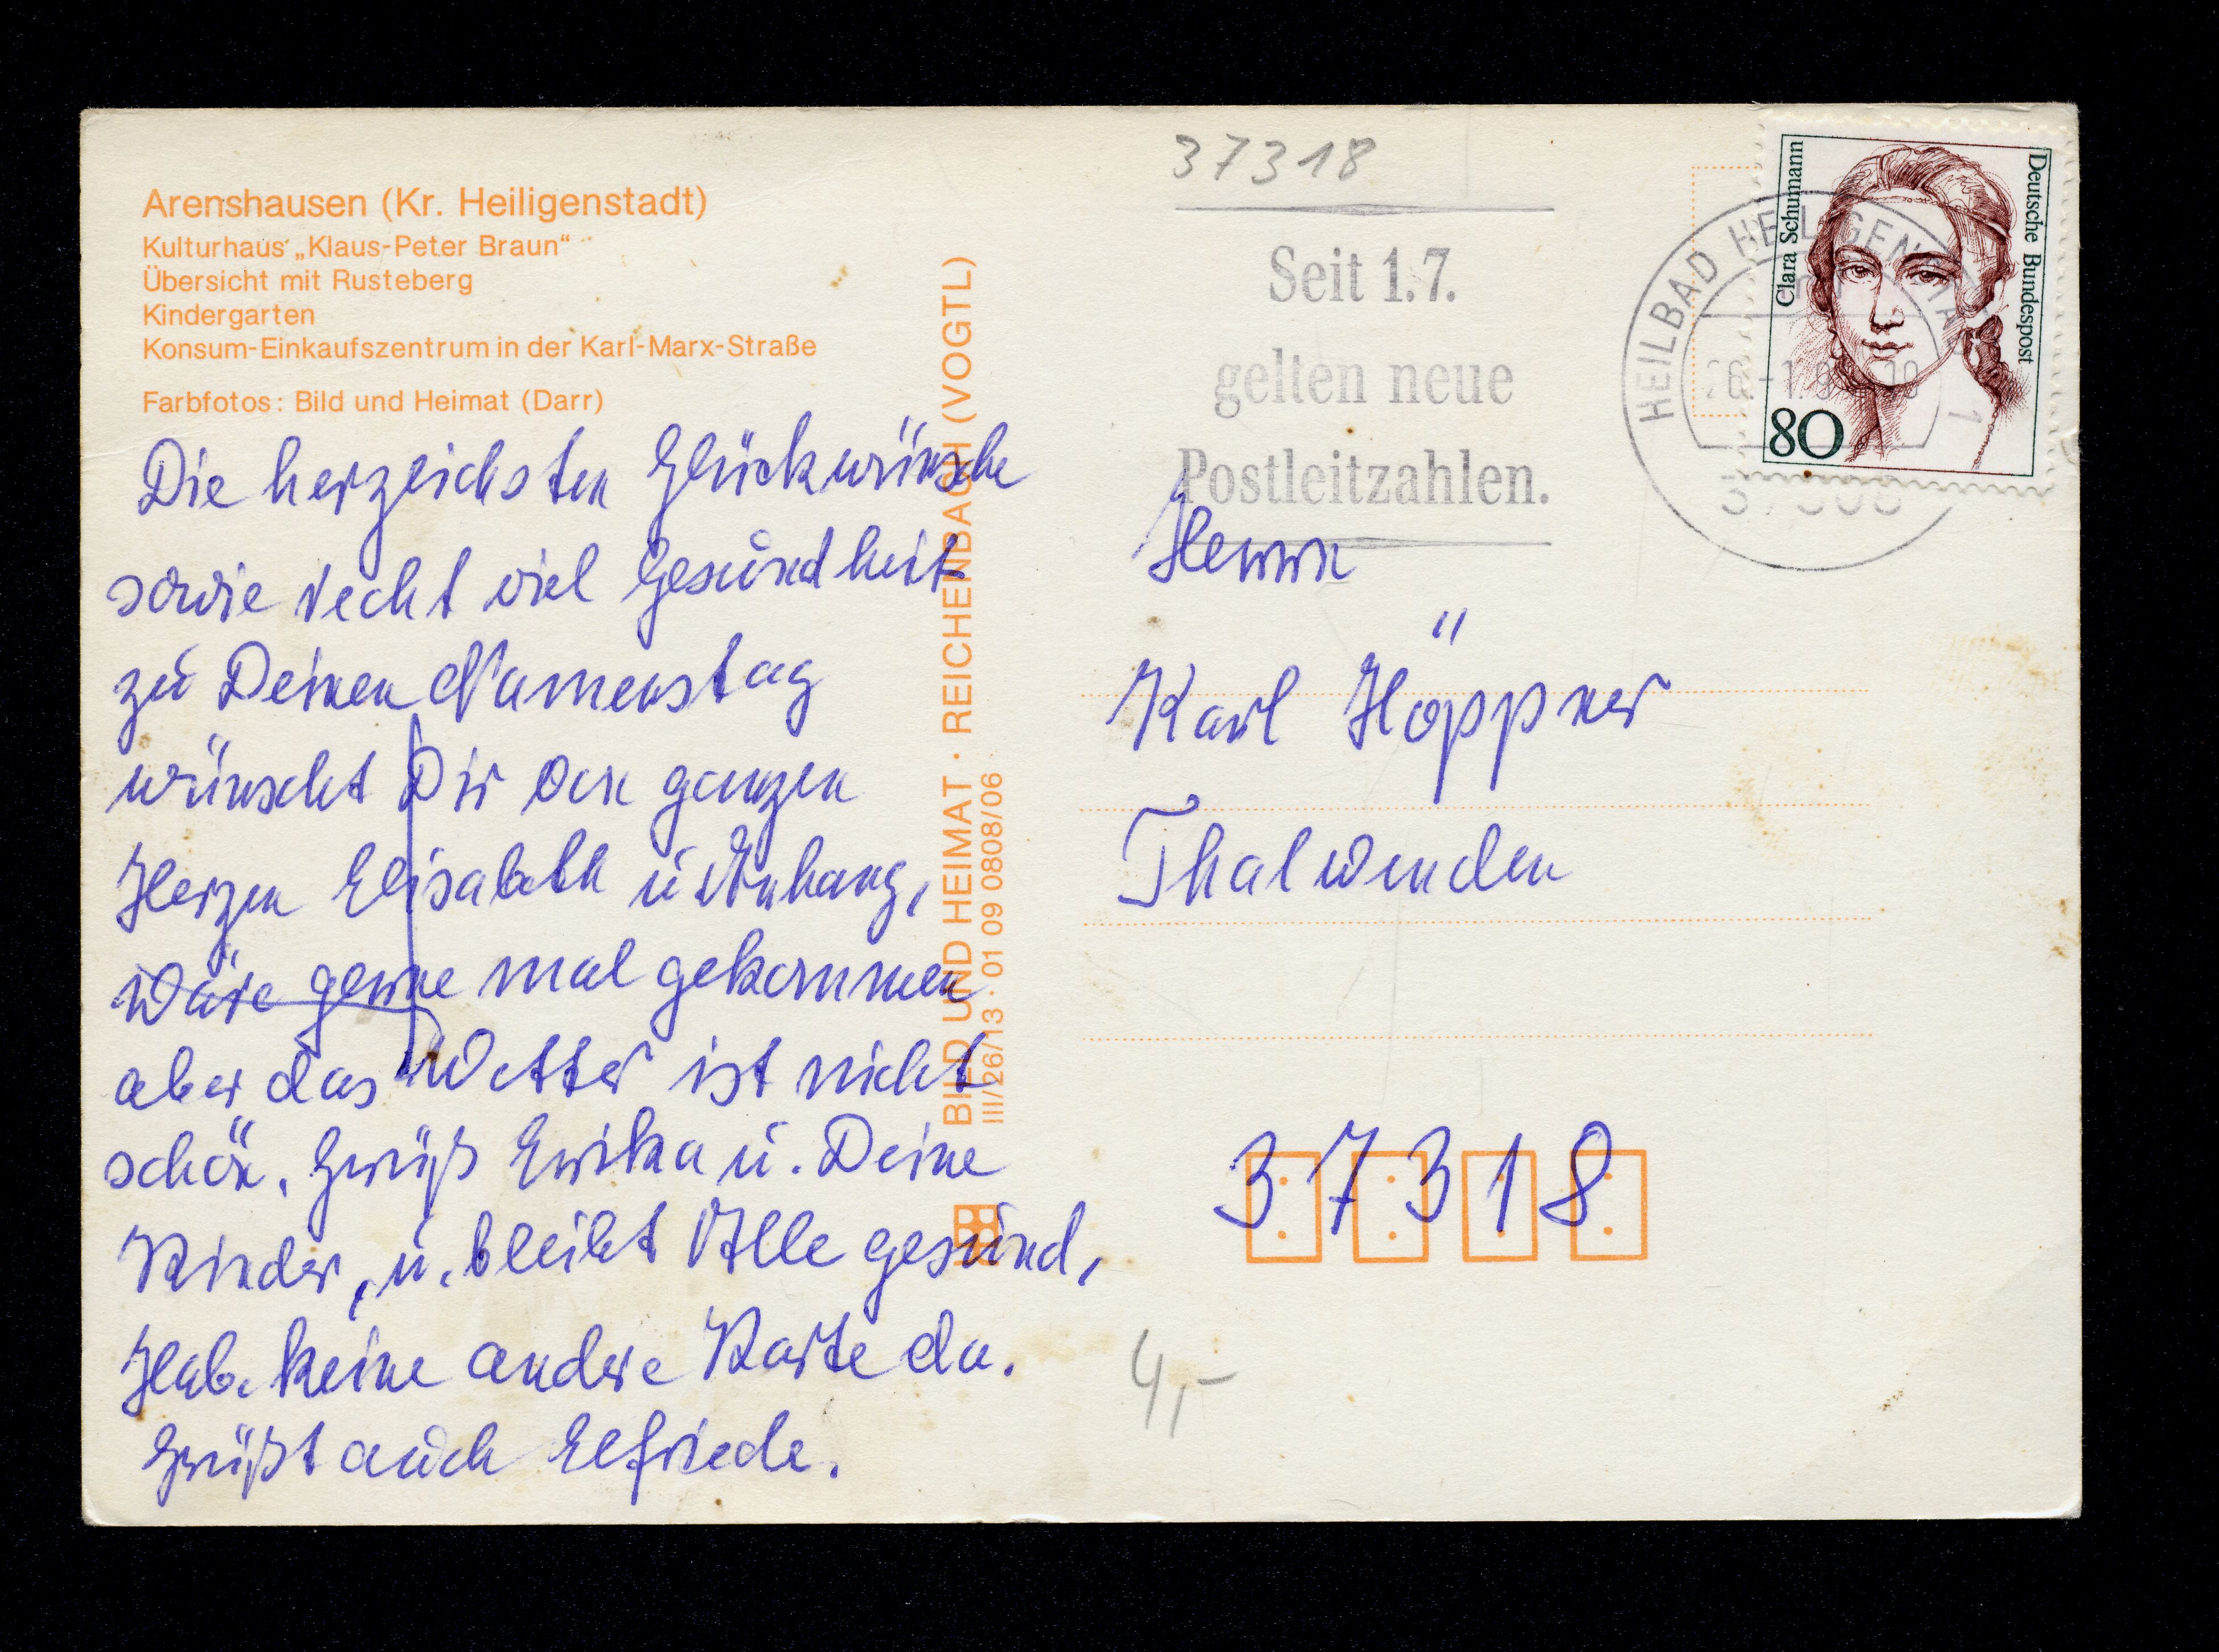 Arenshausen (Kr. Heiligenstadt)
Kulturhaus „Klaus-Peter Braun“
Übersicht mit Rusteberg
Kindergarten
Konsum-Einkaufszentrum in der Karl-Marx-Straße
Farbfotos: Bild und Heimat (Darr)
Die herzlichsten Glückwünsche
sowie recht viel Gesundheit
zu Deinen Namenstag
wünscht Dir von ganzen
Herzen Elisabeth u Anhang,
Wäre gerne mal gekommen
aber das Wetter ist nicht
schön. Grüß Erika u. Deine
Kinder, u. bleibt Alle gesund,
Hab. keine andere Karte da.
Grüßt auch Elfriede.
BILD UND HEIMAT · REICHENBACH (VOGTL)
III/26/13 · 01 09 0808/06
37318
Seit 1.7.
gelten neue
Postleitzahlen.
HEILBAD HEILIGENSTADT 1
Clara Schumann
Deutsche Bundespost
80
Herrn
Karl Höppner
Thalwenden
37318
4,-